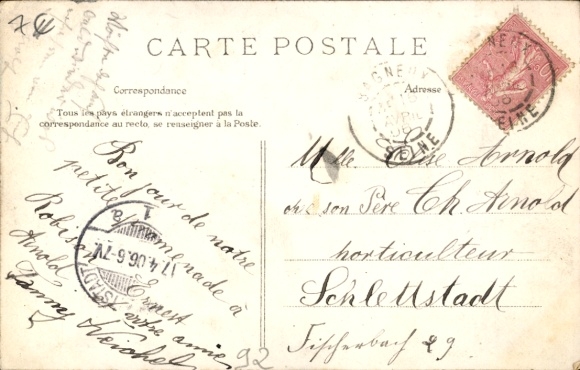 7€
CARTE POSTALE
Correspondance
Adresse
Tous les pays étrangers n'acceptent pas la
correspondance au recto, se renseigner à la Poste.
BAGNEUX
AVRIL
06
SEINE
Bonjour de notre
petite promenade à
Robinson
Ernest
Arnold
votre amie
Fanny Reichel
92
17.4.06.6-7V.
Mlle Arnold
chez son Père Ch Arnold
horticulteur
Schlettstadt
Fischerbach 29